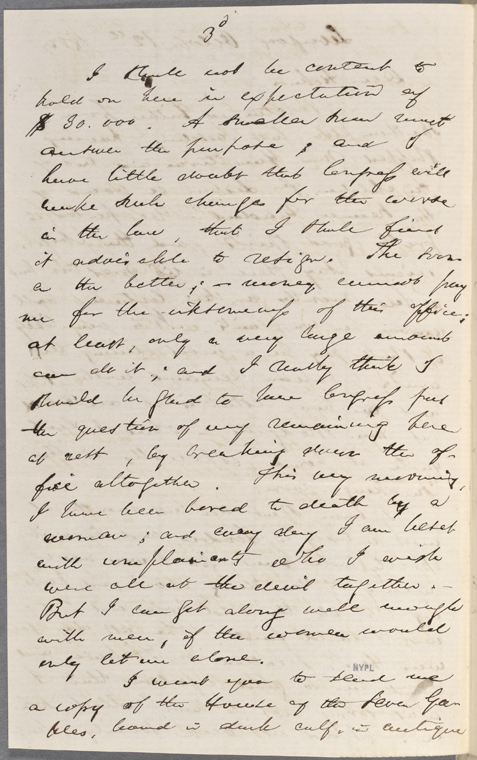 3d
I shall not be content to
hold on here in expectation of
$30.000. A smaller sum must
answer the purpose; and I
have little doubt that Congress will
make such changes for the worse
in the law, that I shall find
it advisable to resign. The soon-
er the better; — money cannot pay
me for the irksomeness of this office;
at least, only a very large amount
can do it; and I really think I
should be glad to have Congress put
the question of my remaining here
at rest, by breaking down the of-
fice altogether. This very morning,
I have been bored to death by a
woman; and every day I am beset
with complainants who I wish
were all at the devil together. —
But I can get along well enough
with men, if the women would
only let me alone.
NYPL
I want you to send me
a copy of the House of the Seven Ga-
bles, bound in dark calf, in antique